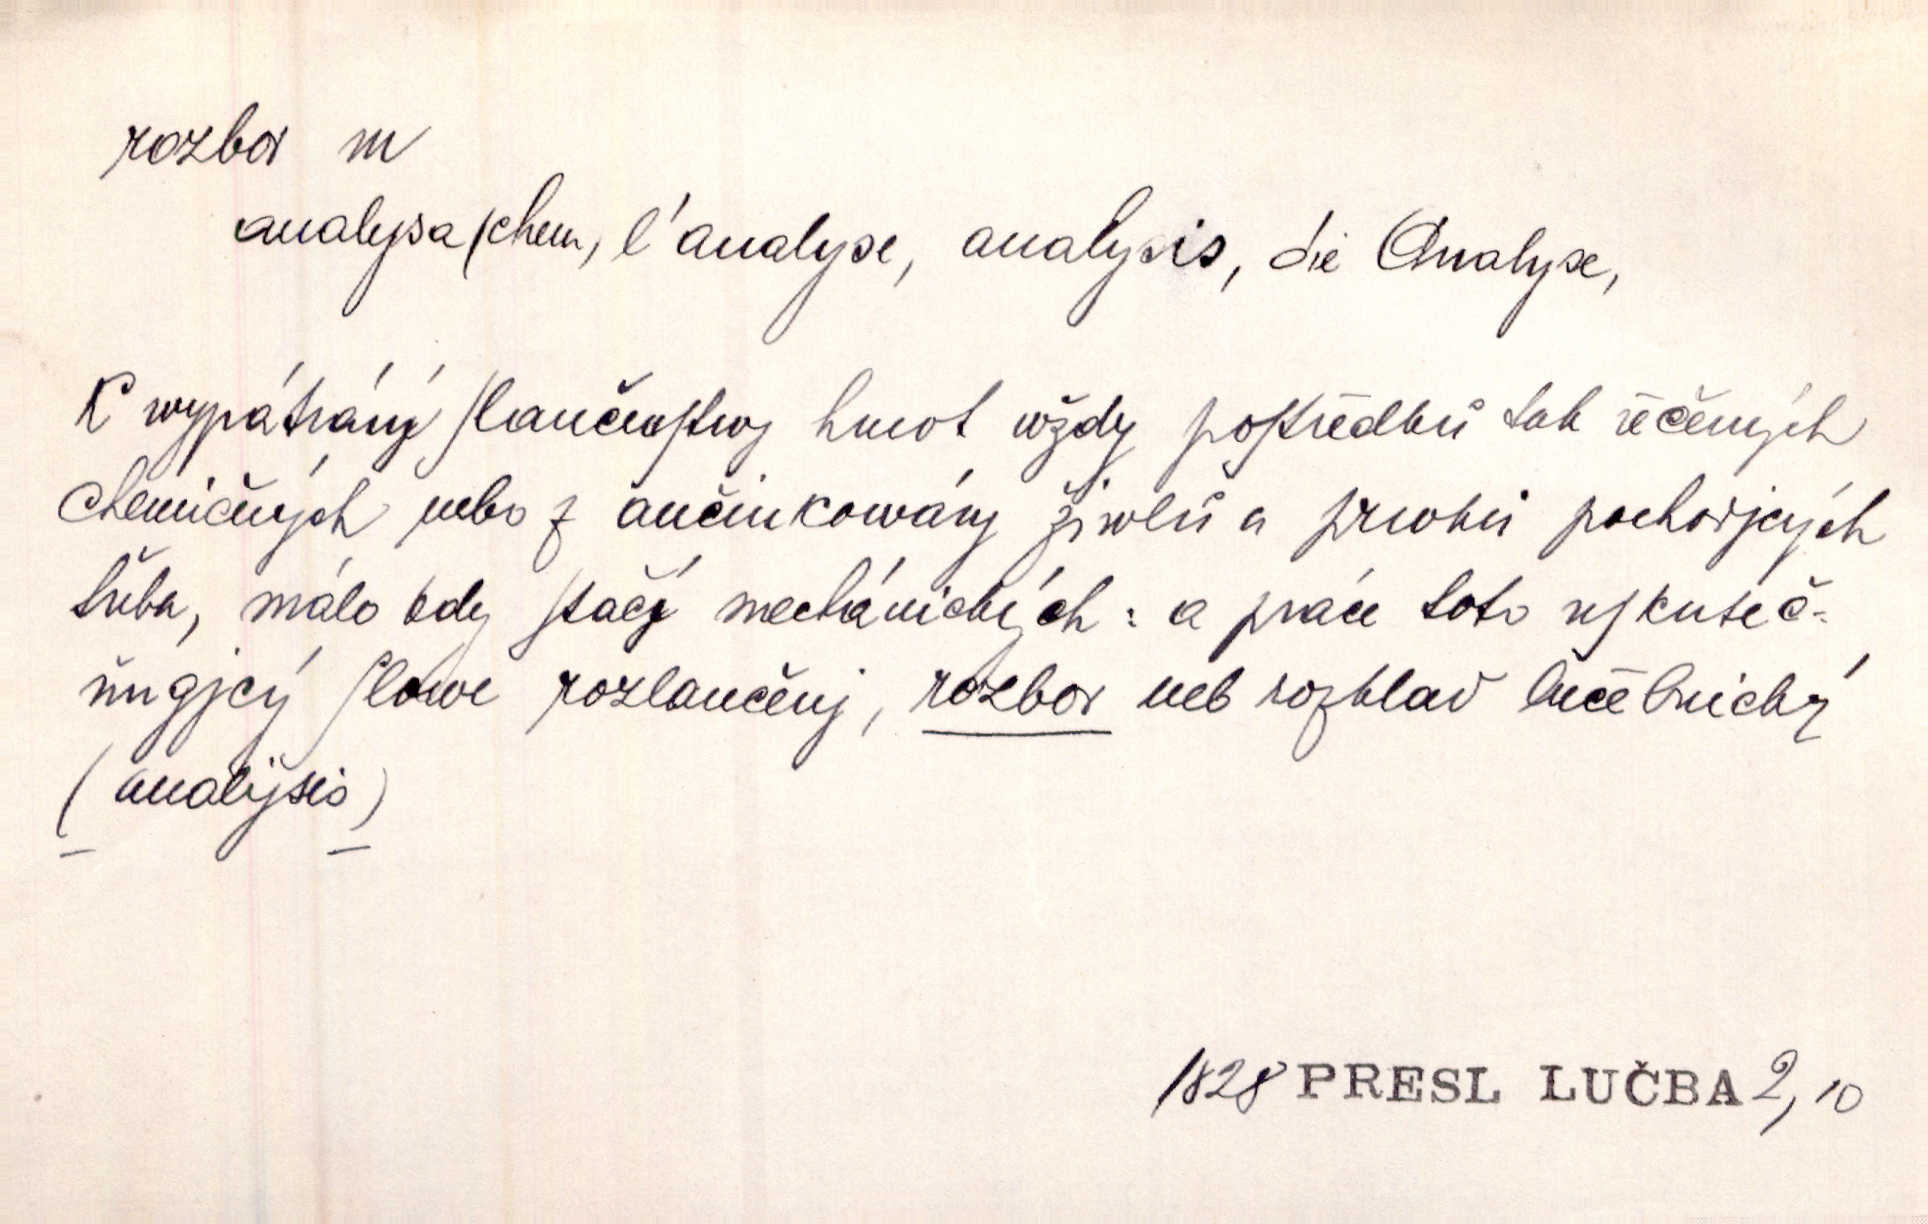 rozbor m
analysa (chem, l'analyse, analysis, die Analyse,
K wypátránj slaučenstwj hmot wždy prostředků tak řečených
chemičných nebo z aučinkowánj žiwlů a prwků pocházjcých
třeba, málo kdy stačj mechánických: a práce tato uskuteč-
ňugjcý slowe rozlaučenj, rozbor neb rozklad lučebnický
(analysis)
1828 PRESL LUČBA 2, 10